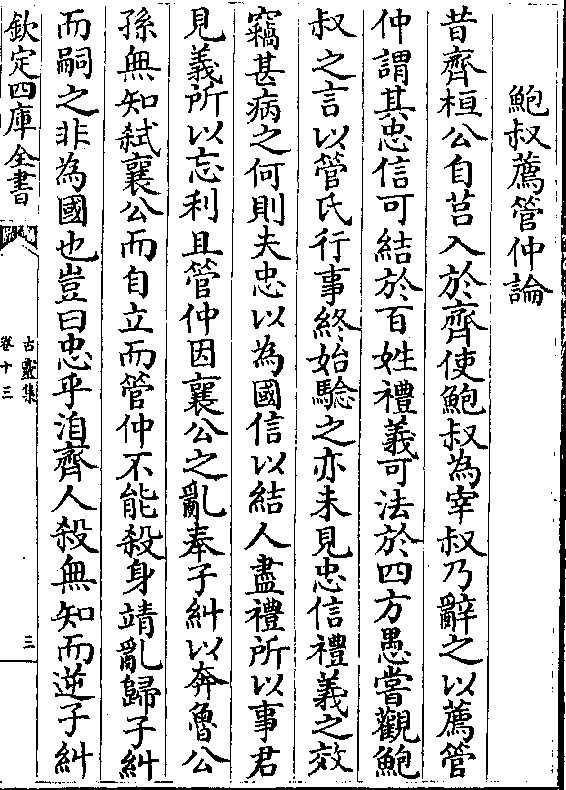 鮑叔薦管仲論
昔齊桓公自莒入於齊使鮑叔為宰叔乃辭之以薦管
仲謂其忠信可結於百姓禮義可法於四方愚嘗觀鮑
叔之言以管氏行事終始驗之亦未見忠信禮義之效
竊甚病之何則夫忠以為國信以結人盡禮所以事君
見義所以忘利且管仲因襄公之亂奉子糾以奔魯公
孫無知弑襄公而自立而管仲不能殺身靖亂歸子糾
而嗣之非為國也豈曰忠乎洎齊人殺無知而逆子糾
欽定四庫全書
古靈集
卷十三
三